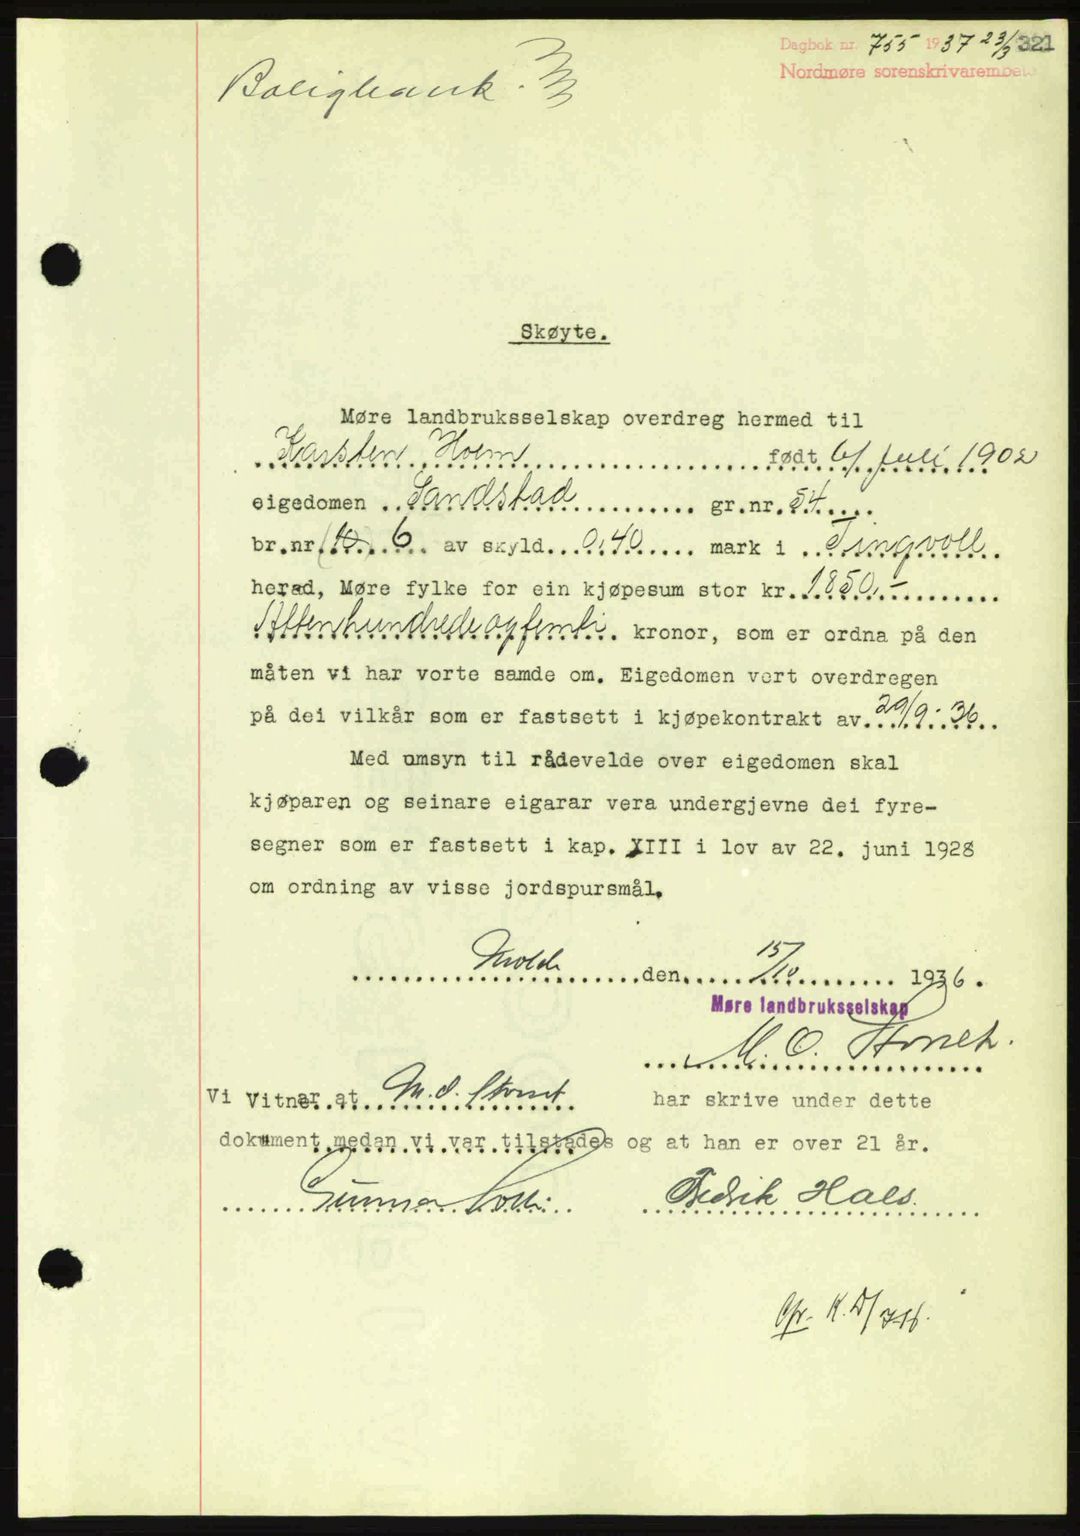 Dagbok nr. 755 1937 23/3 321
Nordmøre sorenskrivarembete
Boligbank.
Skøyte.
Møre landbruksselskap overdreg hermed til
Karsten Hoem født 6/ juli 1902
eigedomen Sandstad gr.nr. 54
br.nr. (10) 6 av skyld 0,40 mark i Tingvoll
herad, Møre fylke for ein kjøpesum stor kr. 1850,-
Attenhundredeogfemti kronor, som er ordna på den
måten vi har vorte samde om. Eigedomen vert overdregen
på dei vilkår som er fastsett i kjøpekontrakt av 29/9-36
Med umsyn til rådevelde over eigedomen skal
kjøparen og seinare eigarar vera undergjevne dei fyre-
segner som er fastsett i kap. XIII i lov av 22. juni 1928
om ordning av visse jordspursmål.
Molde den 15/10 1936.
Møre landbruksselskap
M. O.
Vi Vitnar at M. O. har skrive under dette
dokument medan vi var tilstades og at han er over 21 år.
Gunnar Fredrik Hals.